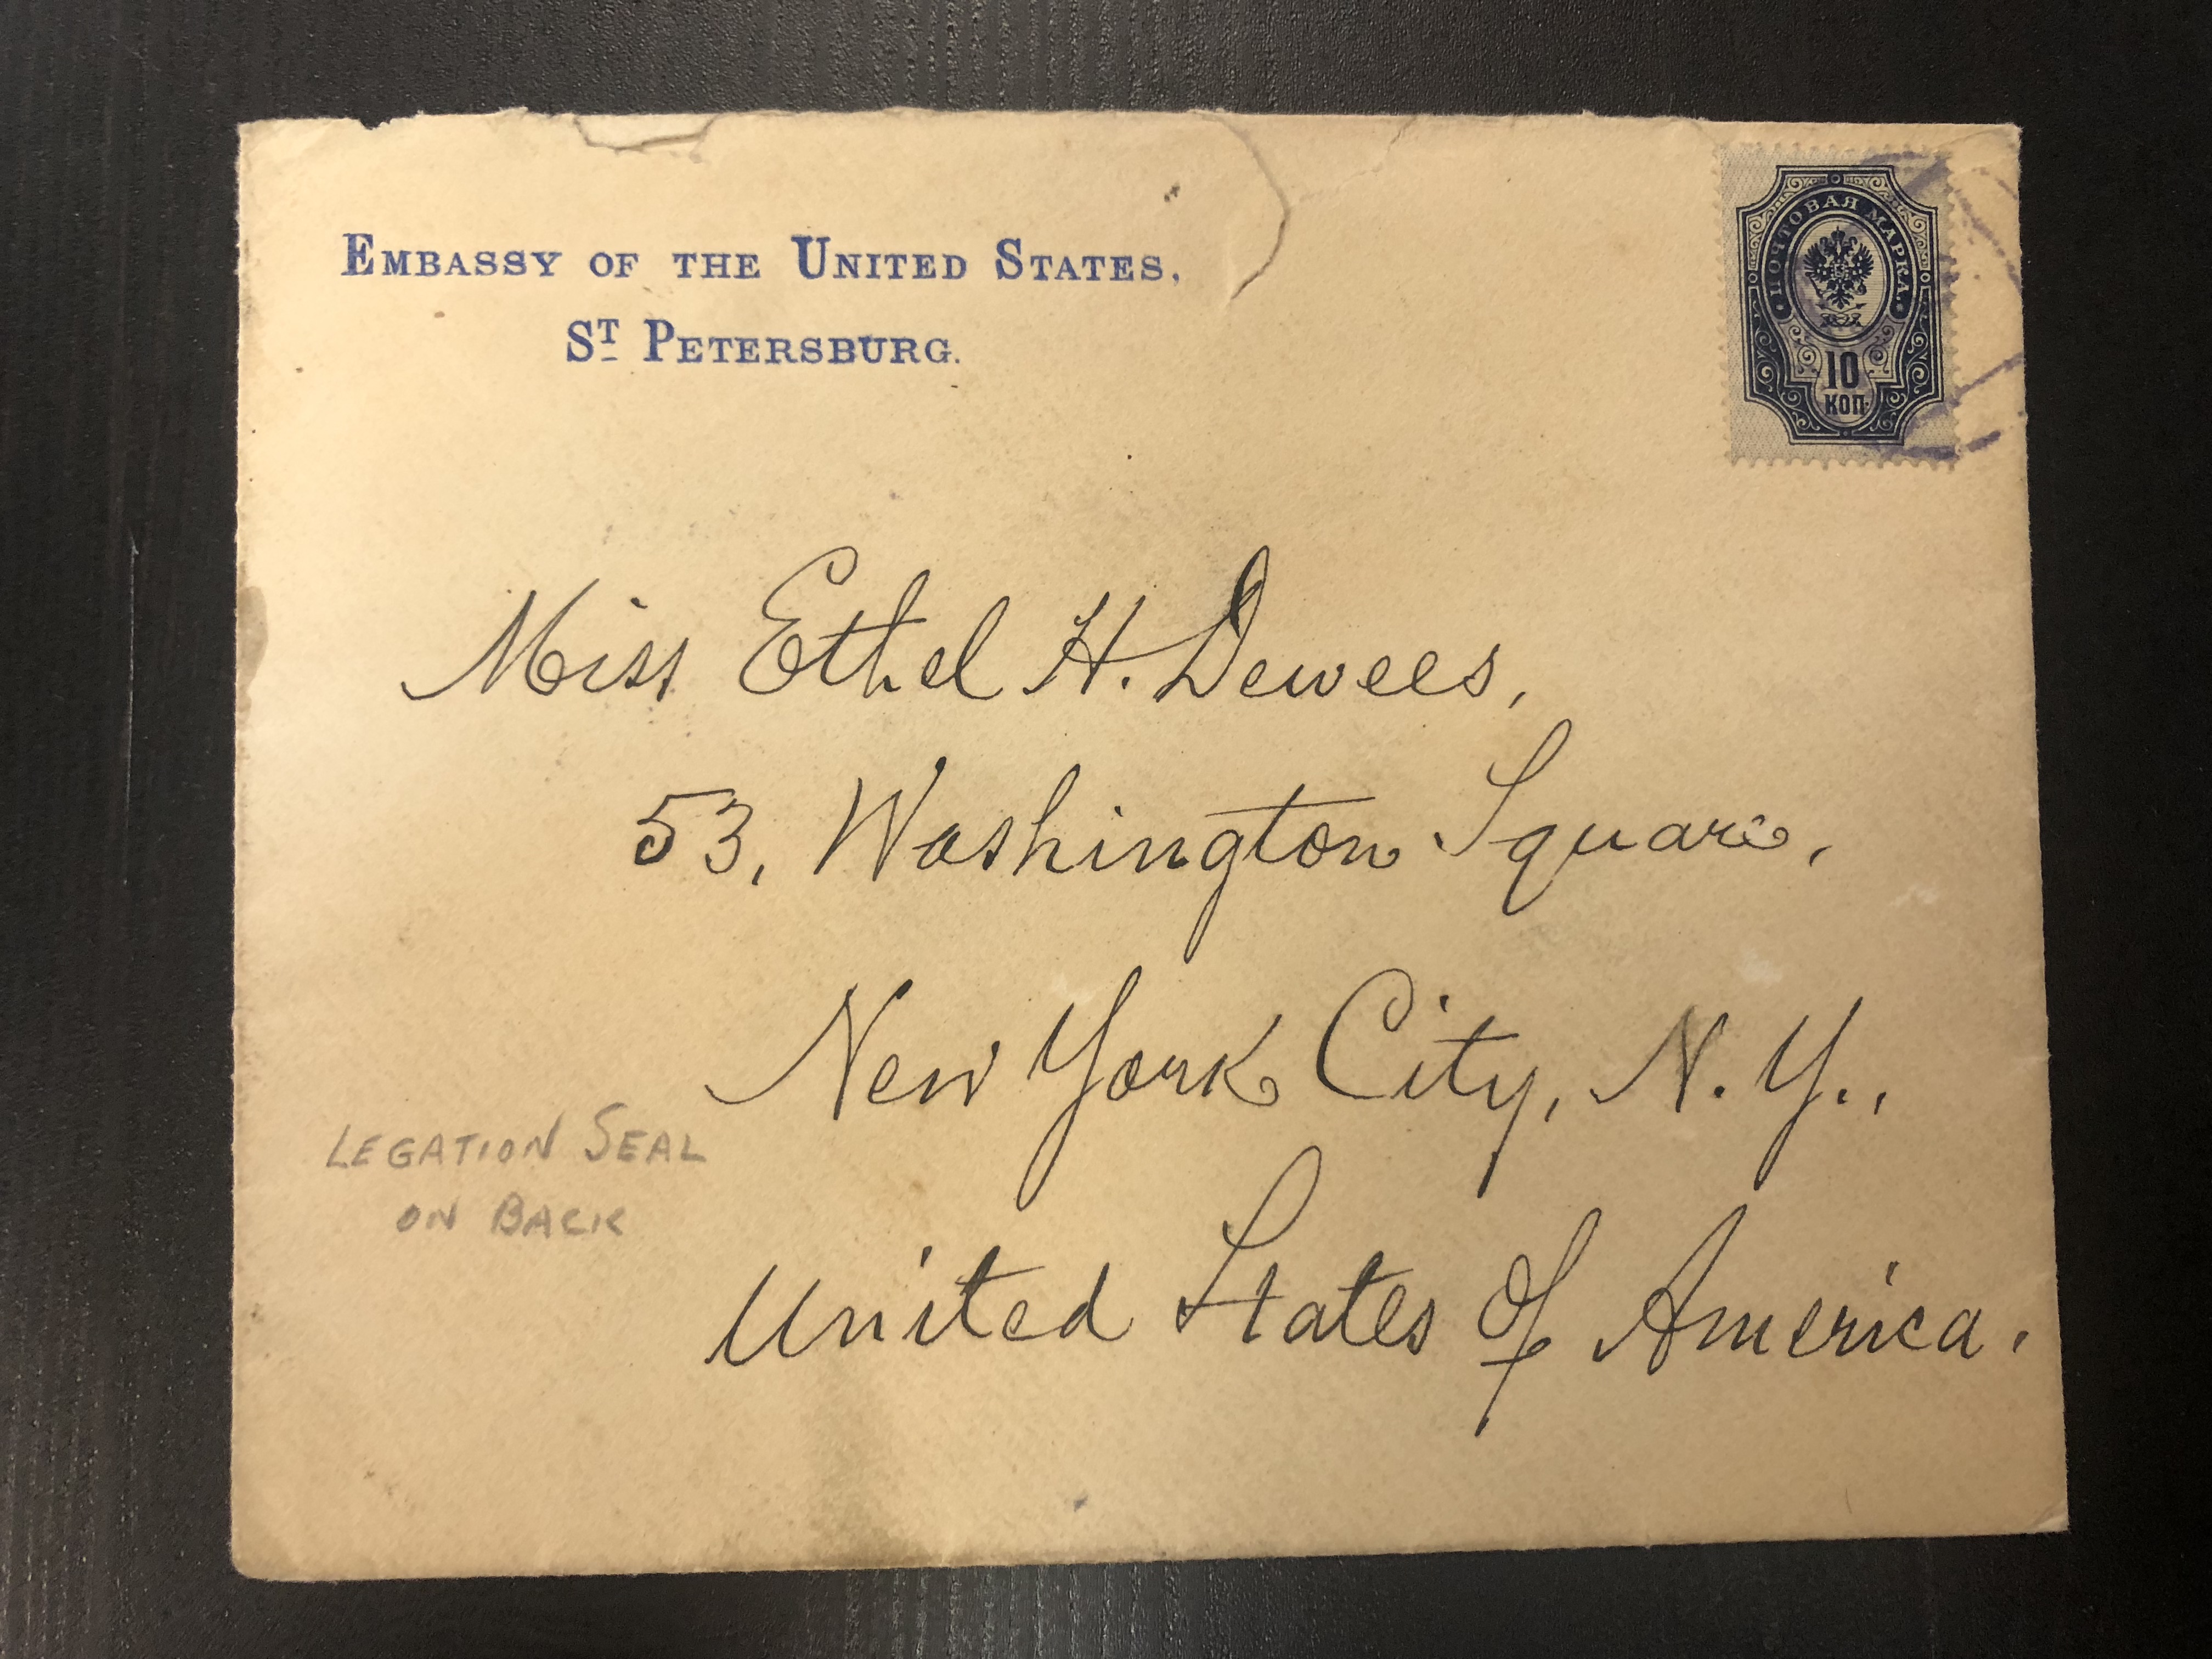 EMBASSY OF THE UNITED STATES,
ST PETERSBURG.
ПОЧТОВАЯ МАРКА.
10
КОП.
Miss Ethel H. Dewees,
53, Washington Square,
New York City, N.Y.,
LEGATION SEAL
ON BACK
United States of America.